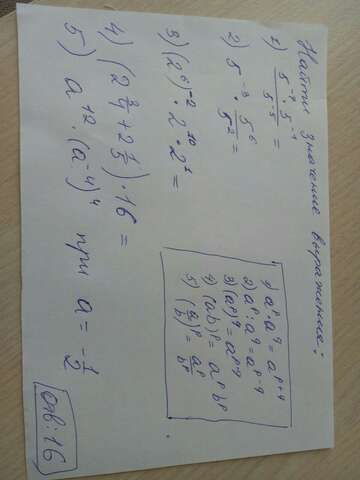 Найти значение выражения:
1) (5⁻⁷ · 5⁻⁹) / 5⁻⁵ =
2) 5⁻³ · 5⁶ / 5² =
3) (2⁶)⁻² · 2¹⁰ · 2¹ =
4) (2 3/4 + 2 1/5) · 16 =
5) a⁺¹² · (a⁻⁴)⁴ при a = -1/2
1) aᵖ · a^q = a^(p+q)
2) aᵖ : a^q = a^(p-q)
3) (aᵖ)^q = a^(pq)
4) (ab)ᵖ = aᵖ bᵖ
5) (a/b)ᵖ = aᵖ/bᵖ
Отв: 16